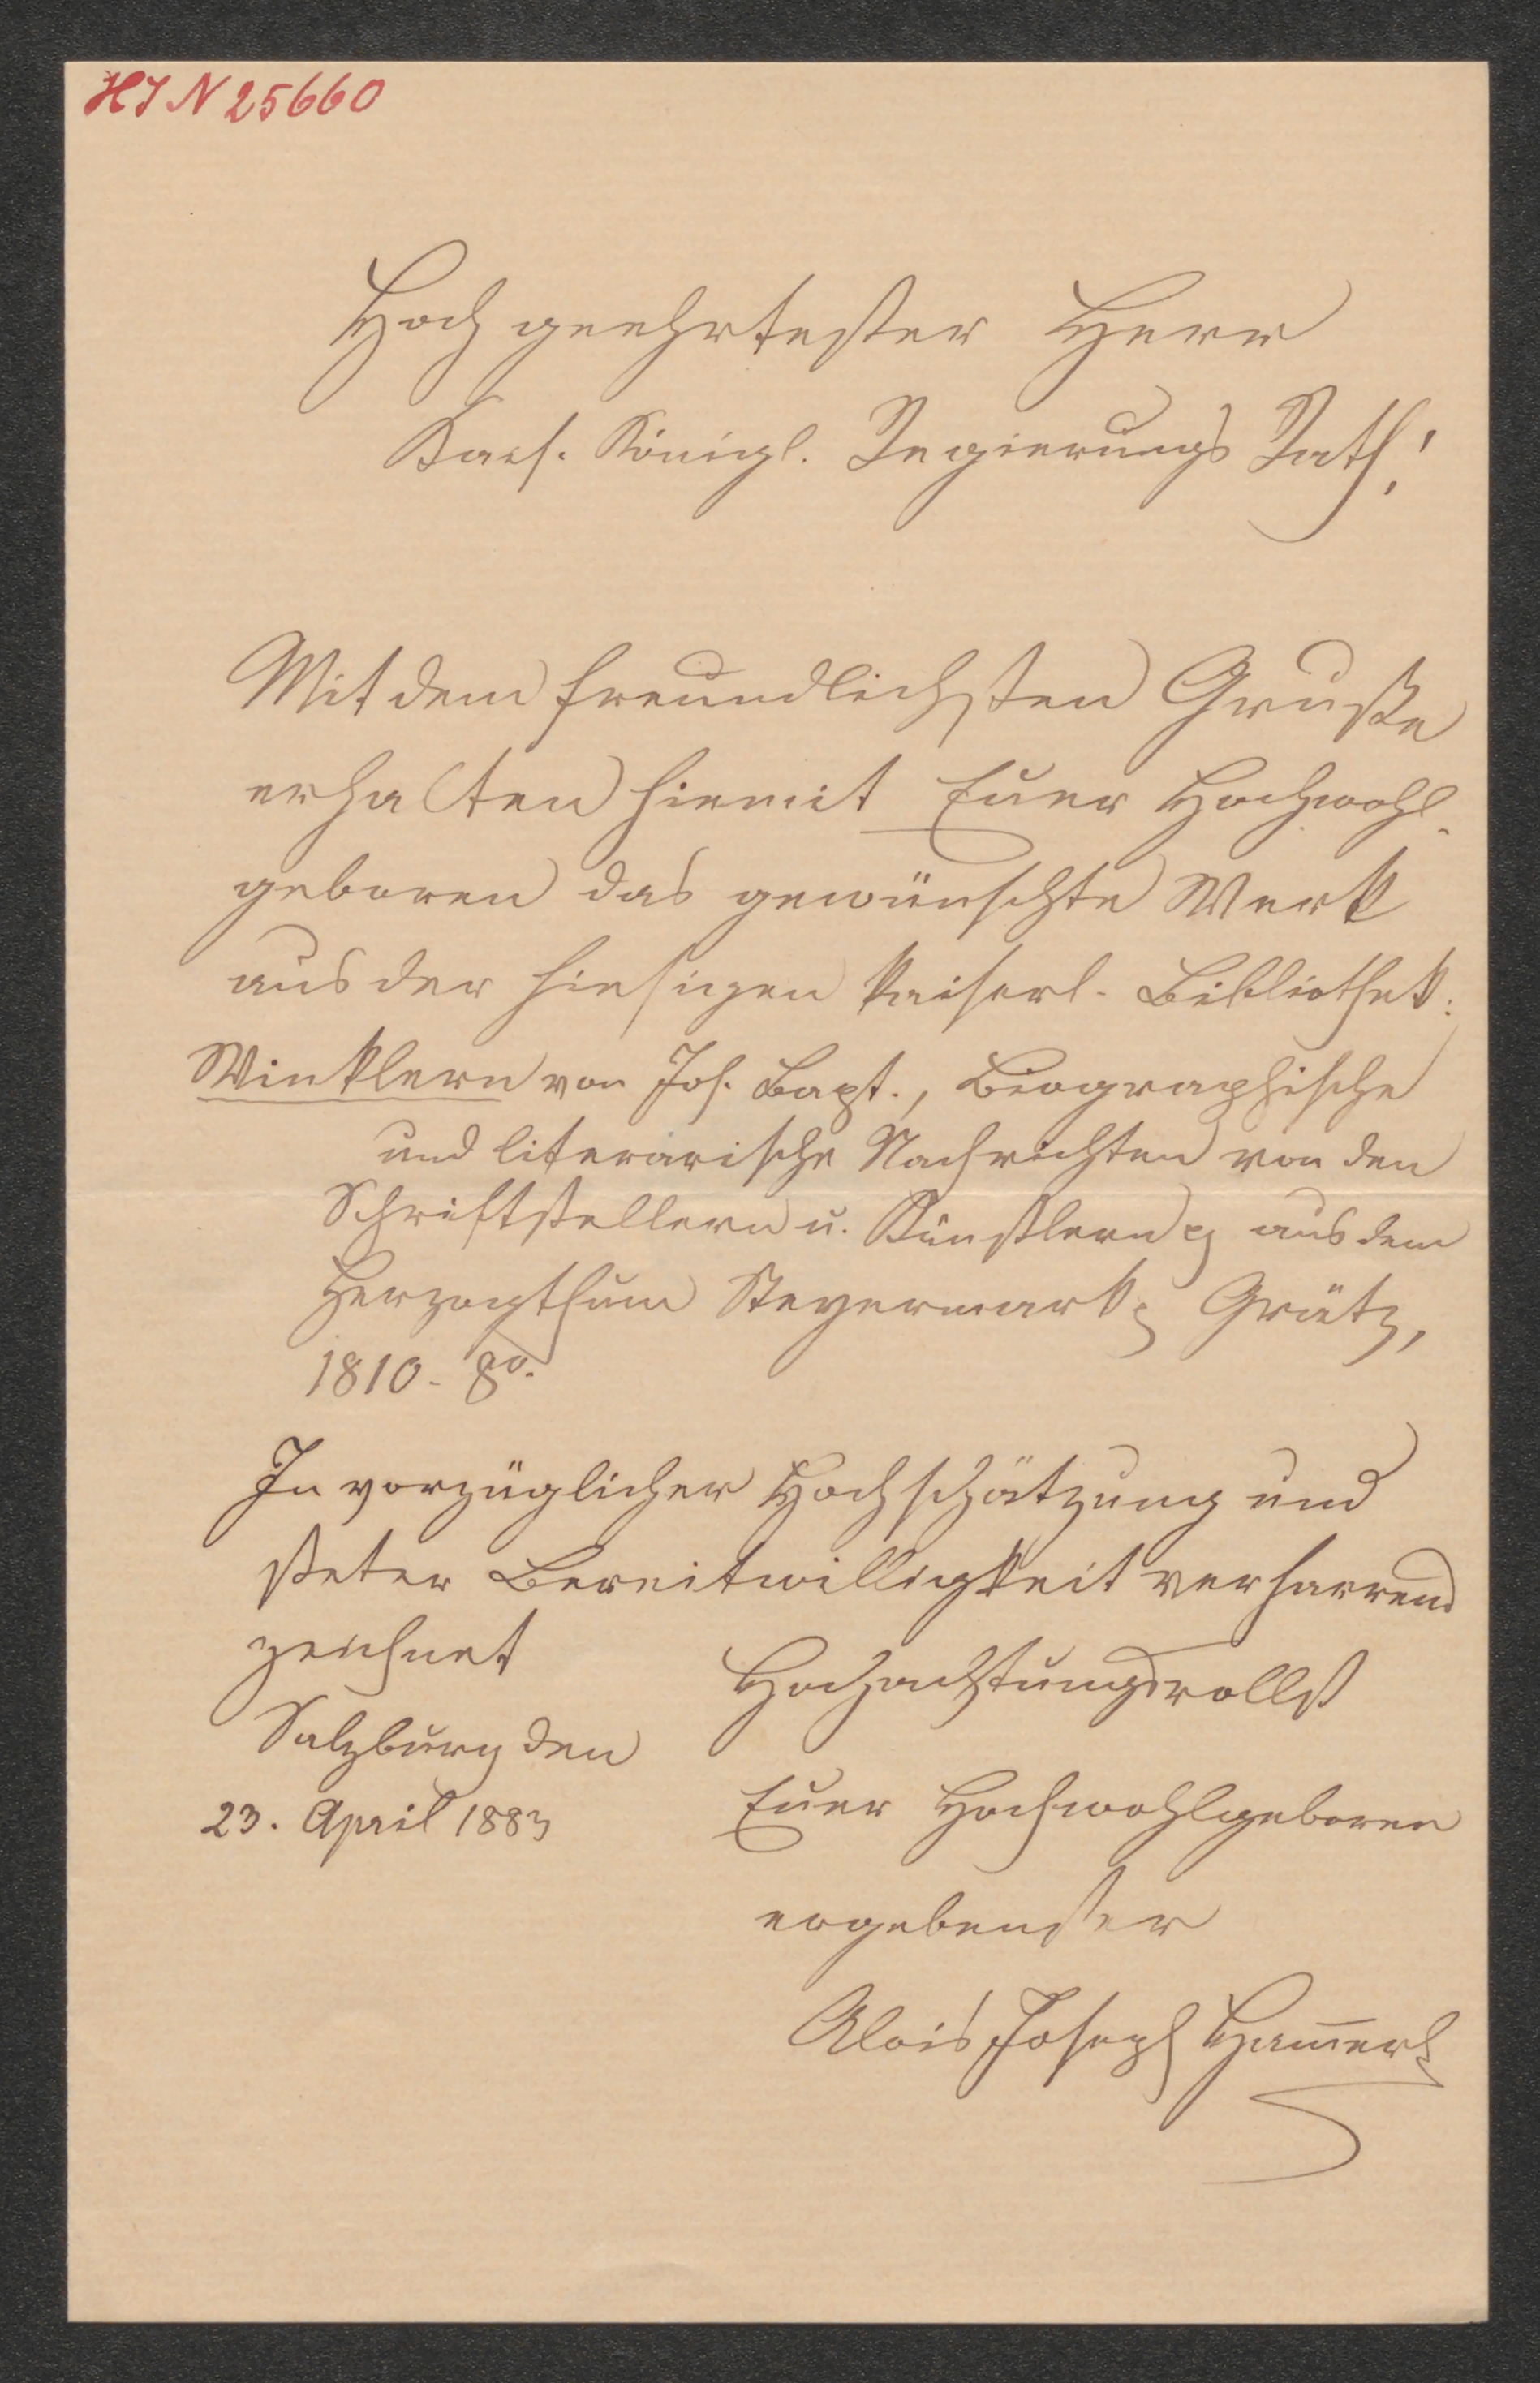 HIN 25660
Hochgeehrtester Herr
Kais. Königl. Regierungs Rath!
Mit dem freundlichsten Gruße
erhalten hiemit Euer Hochwohl-
geboren das gewünschte Werk
aus der hiesigen kaiserl. Bibliothek:
Winklern von Joh. Bapt., Biographische
und literärische Nachrichten von den
Schriftstellern u. Künstlern aus dem
Herzogthum Steyermark; Grätz,
1810. 8º.
In vorzüglicher Hochschätzung und
steter Bereitwilligkeit verharrend
zeichnet
Hochachtungsvollst
Salzburg den
23. April 1883
Euer Hochwohlgeboren
ergebenster
Alois Joseph Ham̅erle